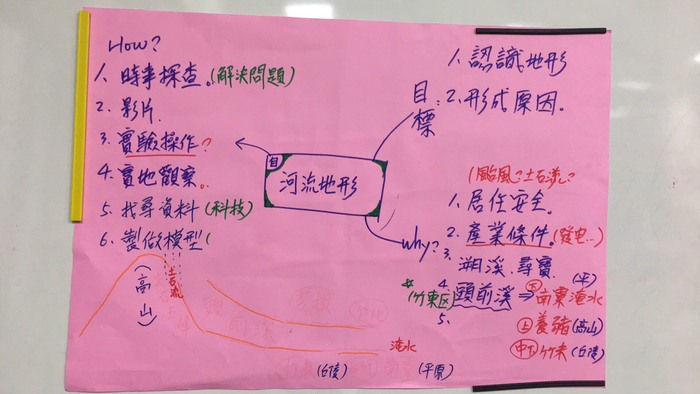 How?
1. 時事探查。(解決問題)
2. 影片.
3. 實驗操作?
4. 實地觀察。
5. 找尋資料(科技)
6. 製做模型(
(高山)
土石流
目
河流地形
目標:
1. 認識地形
2. 形成原因。
why?
(颱風?土石流?
1. 居住安全。
2. 產業條件。(發电...)
3. 溯溪、尋寶.
4. 頭前溪⇒
☆(竹東區)
5.
(平)
下 南寮淹水
上 養豬(高山)
中 竹東(丘陵)
淹水
(丘陵)
(平原)